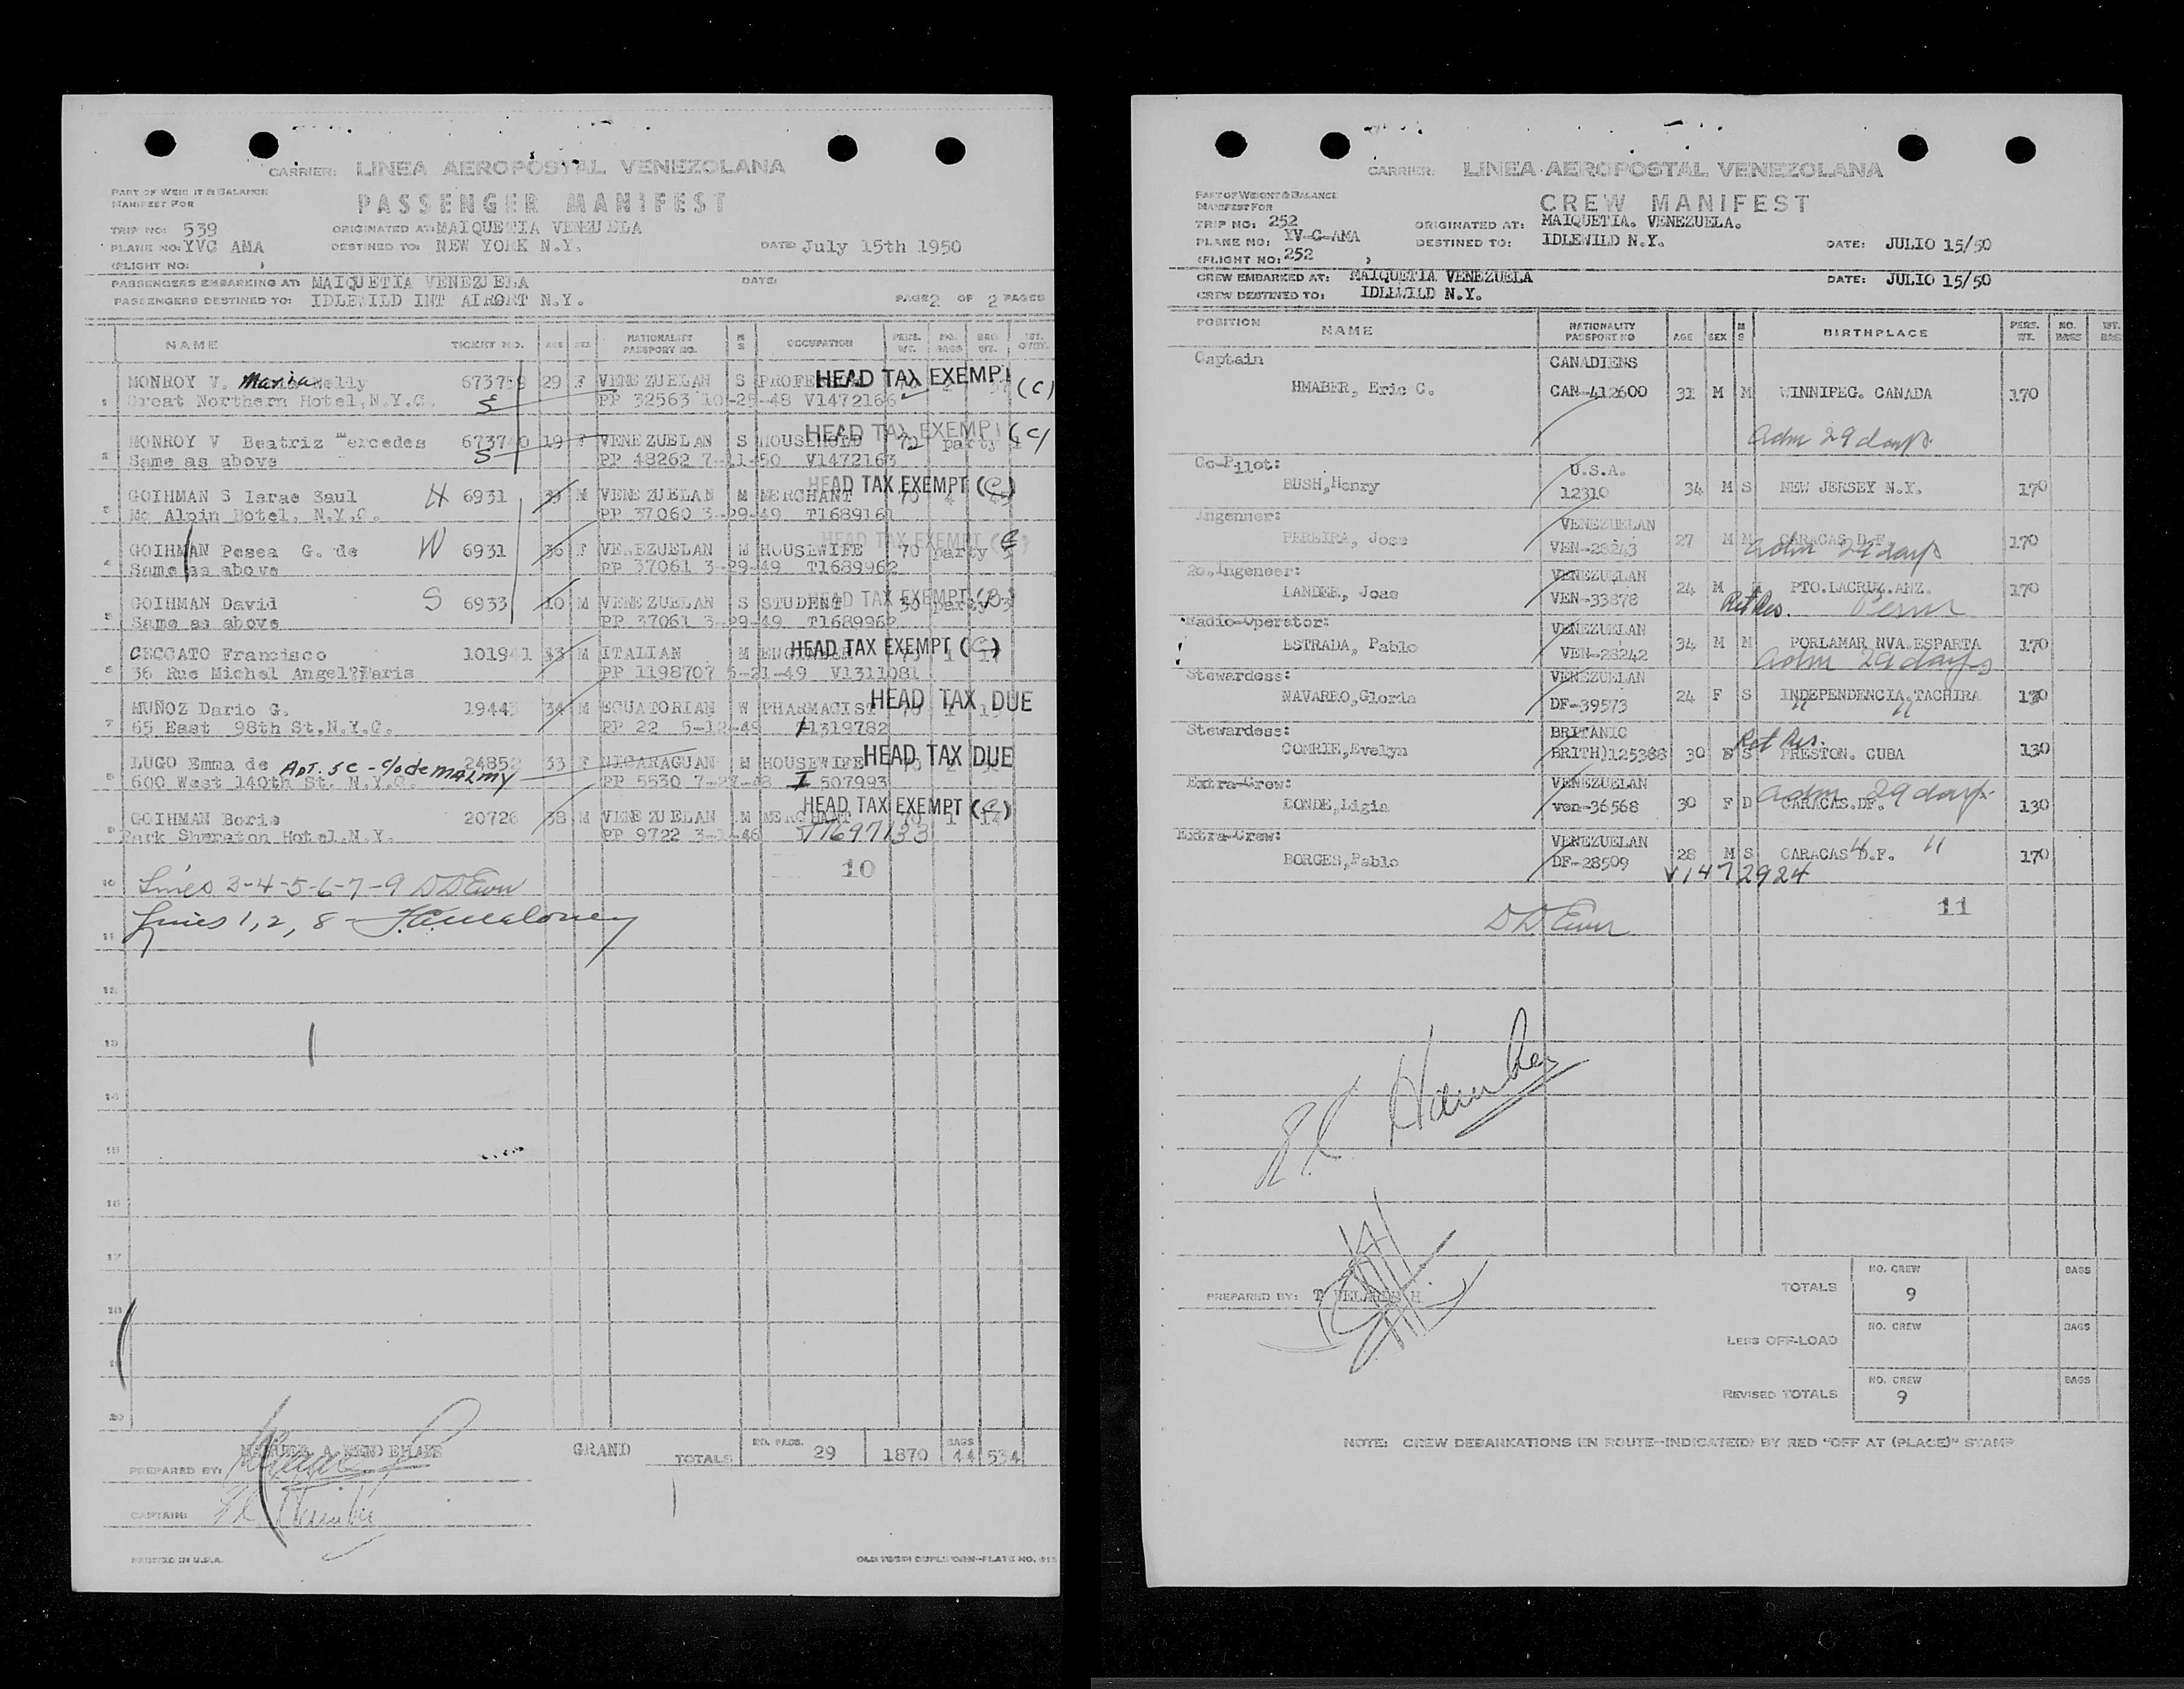 CARRIER: LINEA AEROPOSTAL VENEZOLANA
PART OF WEIGHT & BALANCE
MANIFEST FOR
PASSENGER MANIFEST
TRIP NO: 539 ORIGINATED AT: MAIQUETIA VENEZUELA
PLANE NO: YVC AMA DESTINED TO: NEW YORK N.Y. DATE: July 15th 1950
(FLIGHT NO: )
PASSENGERS EMBARKING AT: MAIQUETIA VENEZUELA DATE:
PASSENGERS DESTINED TO: IDLEWILD INT AIRORT N.Y. PAGE 2 OF 2 PAGES
NAME TICKET NO. AGE SEX NATIONALITY PASSPORT NO. M S OCCUPATION PERS. WT. NO. BAGS BAG WT.
MONROY V. Maria Nelly 29 F VENEZUELAN S HEAD TAX EXEMPT (C)
1 Great Northern Hotel, N.Y.C. S PP 32563 10-25-48 V1472166
MONROY V Beatriz Mercedes 673740 19 F VENEZUELAN S HOUSEHOLD HEAD TAX EXEMPT (C) 72 party
2 Same as above S PP 48262 7-11-50 V1472163
GOIHMAN S Israc Saul H 6931 M VENEZUELAN M MERCHANT HEAD TAX EXEMPT (C)
3 Mc Alpin Hotel, N.Y.C. PP 37060 3-29-49 T1689161
GOIHMAN Pesea G. de W 6931 36 F VENEZUELAN M HOUSEWIFE HEAD TAX EXEMPT (C) 70 party
4 Same as above PP 37061 3-29-49 T1689962
GOIHMAN David S 6933 10 M VENEZUELAN S STUDENT HEAD TAX EXEMPT (C) 50 party
5 Same as above PP 37061 3-29-49 T1689962
CECCATO Francisco 101941 33 M ITALIAN M HEAD TAX EXEMPT (C)
6 36 Rue Michel Angel?Paris PP 1198707 5-21-49 V1311081
MUÑOZ Dario G. 34 M ECUATORIAN W PHARMACIST HEAD TAX DUE
7 65 East 98th St.N.Y.C. PP 22 5-12-49 1319782
LUGO Emma de APT. 5C - c/o de MALMY 24852 33 F NICARAGUAN M HOUSEWIFE HEAD TAX DUE
8 600 West 140th St. N.Y.C. PP 5530 7-27-48 I 507993
GOIHMAN Boris 20726 38 M VENEZUELAN M MERCHANT HEAD TAX EXEMPT (C)
9 Park Sheraton Hotel,N.Y. PP 9722 3-1-46 T1697133
10
10 Lines 3-4-5-6-7-9 D D Ewn
Lines 1, 2, 8 -
11
12
13
14
15
16
17
18
19
20
GRAND TOTALS NO. PASS. 29 1870 BAGS 44 534
PREPARED BY:
CAPTAIN:
PRINTED IN U.S.A.
CARRIER: LINEA AEROPOSTAL VENEZOLANA
PART OF WEIGHT & BALANCE
MANIFEST FOR
CREW MANIFEST
TRIP NO: 252 ORIGINATED AT: MAIQUETIA. VENEZUELA.
PLANE NO: YV-C-AMA DESTINED TO: IDLEWILD N.Y. DATE: JULIO 15/50
(FLIGHT NO: 252 )
CREW EMBARKED AT: MAIQUETIA VENEZUELA DATE: JULIO 15/50
CREW DESTINED TO: IDLEWILD N.Y.
POSITION NAME NATIONALITY PASSPORT NO AGE SEX M S BIRTHPLACE PERS. WT. NO. BAGS WT. BAG
Captain CANADIENS
HMABER, Eric C. CAN-412600 31 M M WINNIPEG. CANADA 170
adm 29 days
Co-Pilot: U.S.A.
BUSH, Henry 12310 34 M S NEW JERSEY N.Y. 170
Ingenner: VENEZUELAN
PEREIRA, Jose VEN-28243 27 M M CARACAS D.F. 170
adm 29 days
2o.Ingeneer: VENEZUELAN
LANDER, Jose VEN-33878 24 M PTO.LACRUZ.ANZ. 170
Ret Res.
Radio-Operator: VENEZUELAN
ESTRADA, Pablo VEN-28242 34 M M PORLAMAR NVA.ESPARTA 170
adm 29 days
Stewardess: VENEZUELAN
NAVARRO,Gloria DF-39573 24 F S INDEPENDENCIA.TACHIRA 130
" "
Stewardess: BRITANIC Ret Res.
COMRIE,Evelyn BRITH)125388 30 S PRESTON. CUBA 130
Extra-Crew: VENEZUELAN adm 29 days
CONDE,Ligia ven-36568 30 F D CARACAS.DF. 130
Extra-Crew: VENEZUELAN " "
BORGES,Pablo DF-28509 28 M S CARACAS D.F. 170
V1472924
D D Ewn 11
PREPARED BY:
TOTALS NO. CREW 9 BAGS
LESS OFF-LOAD NO. CREW BAGS
REVISED TOTALS NO. CREW 9 BAGS
NOTE: CREW DEBARKATIONS EN ROUTE-INDICATE(D) BY RED "OFF AT (PLACE)" STAMP